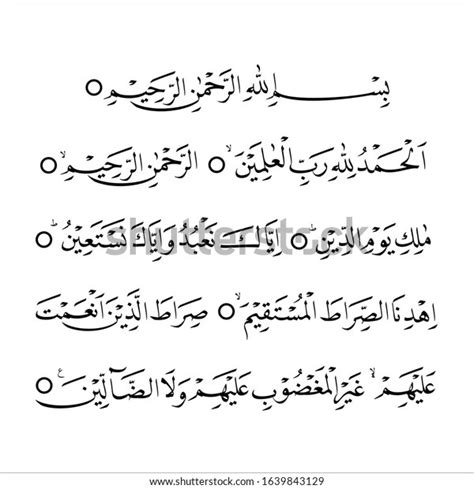 بِسْمِ اللهِ الرَّحْمٰنِ الرَّحِيْمِ ○
اَلْحَمْدُ لِلهِ رَبِّ الْعٰلَمِيْنَۙ ○ الرَّحْمٰنِ الرَّحِيْمِۙ ○
مٰلِكِ يَوْمِ الدِّيْنِۗ ○ اِيَّاكَ نَعْبُدُ وَاِيَّاكَ نَسْتَعِيْنُۗ ○
shutterstock
اِهْدِنَا الصِّرَاطَ الْمُسْتَقِيْمَۙ ○ صِرَاطَ الَّذِيْنَ اَنْعَمْتَ
عَلَيْهِمْ ۙ غَيْرِ الْمَغْضُوْبِ عَلَيْهِمْ وَلَا الضَّاۤلِّيْنَ ࣖ ○
www.shutterstock.com · 1639843129